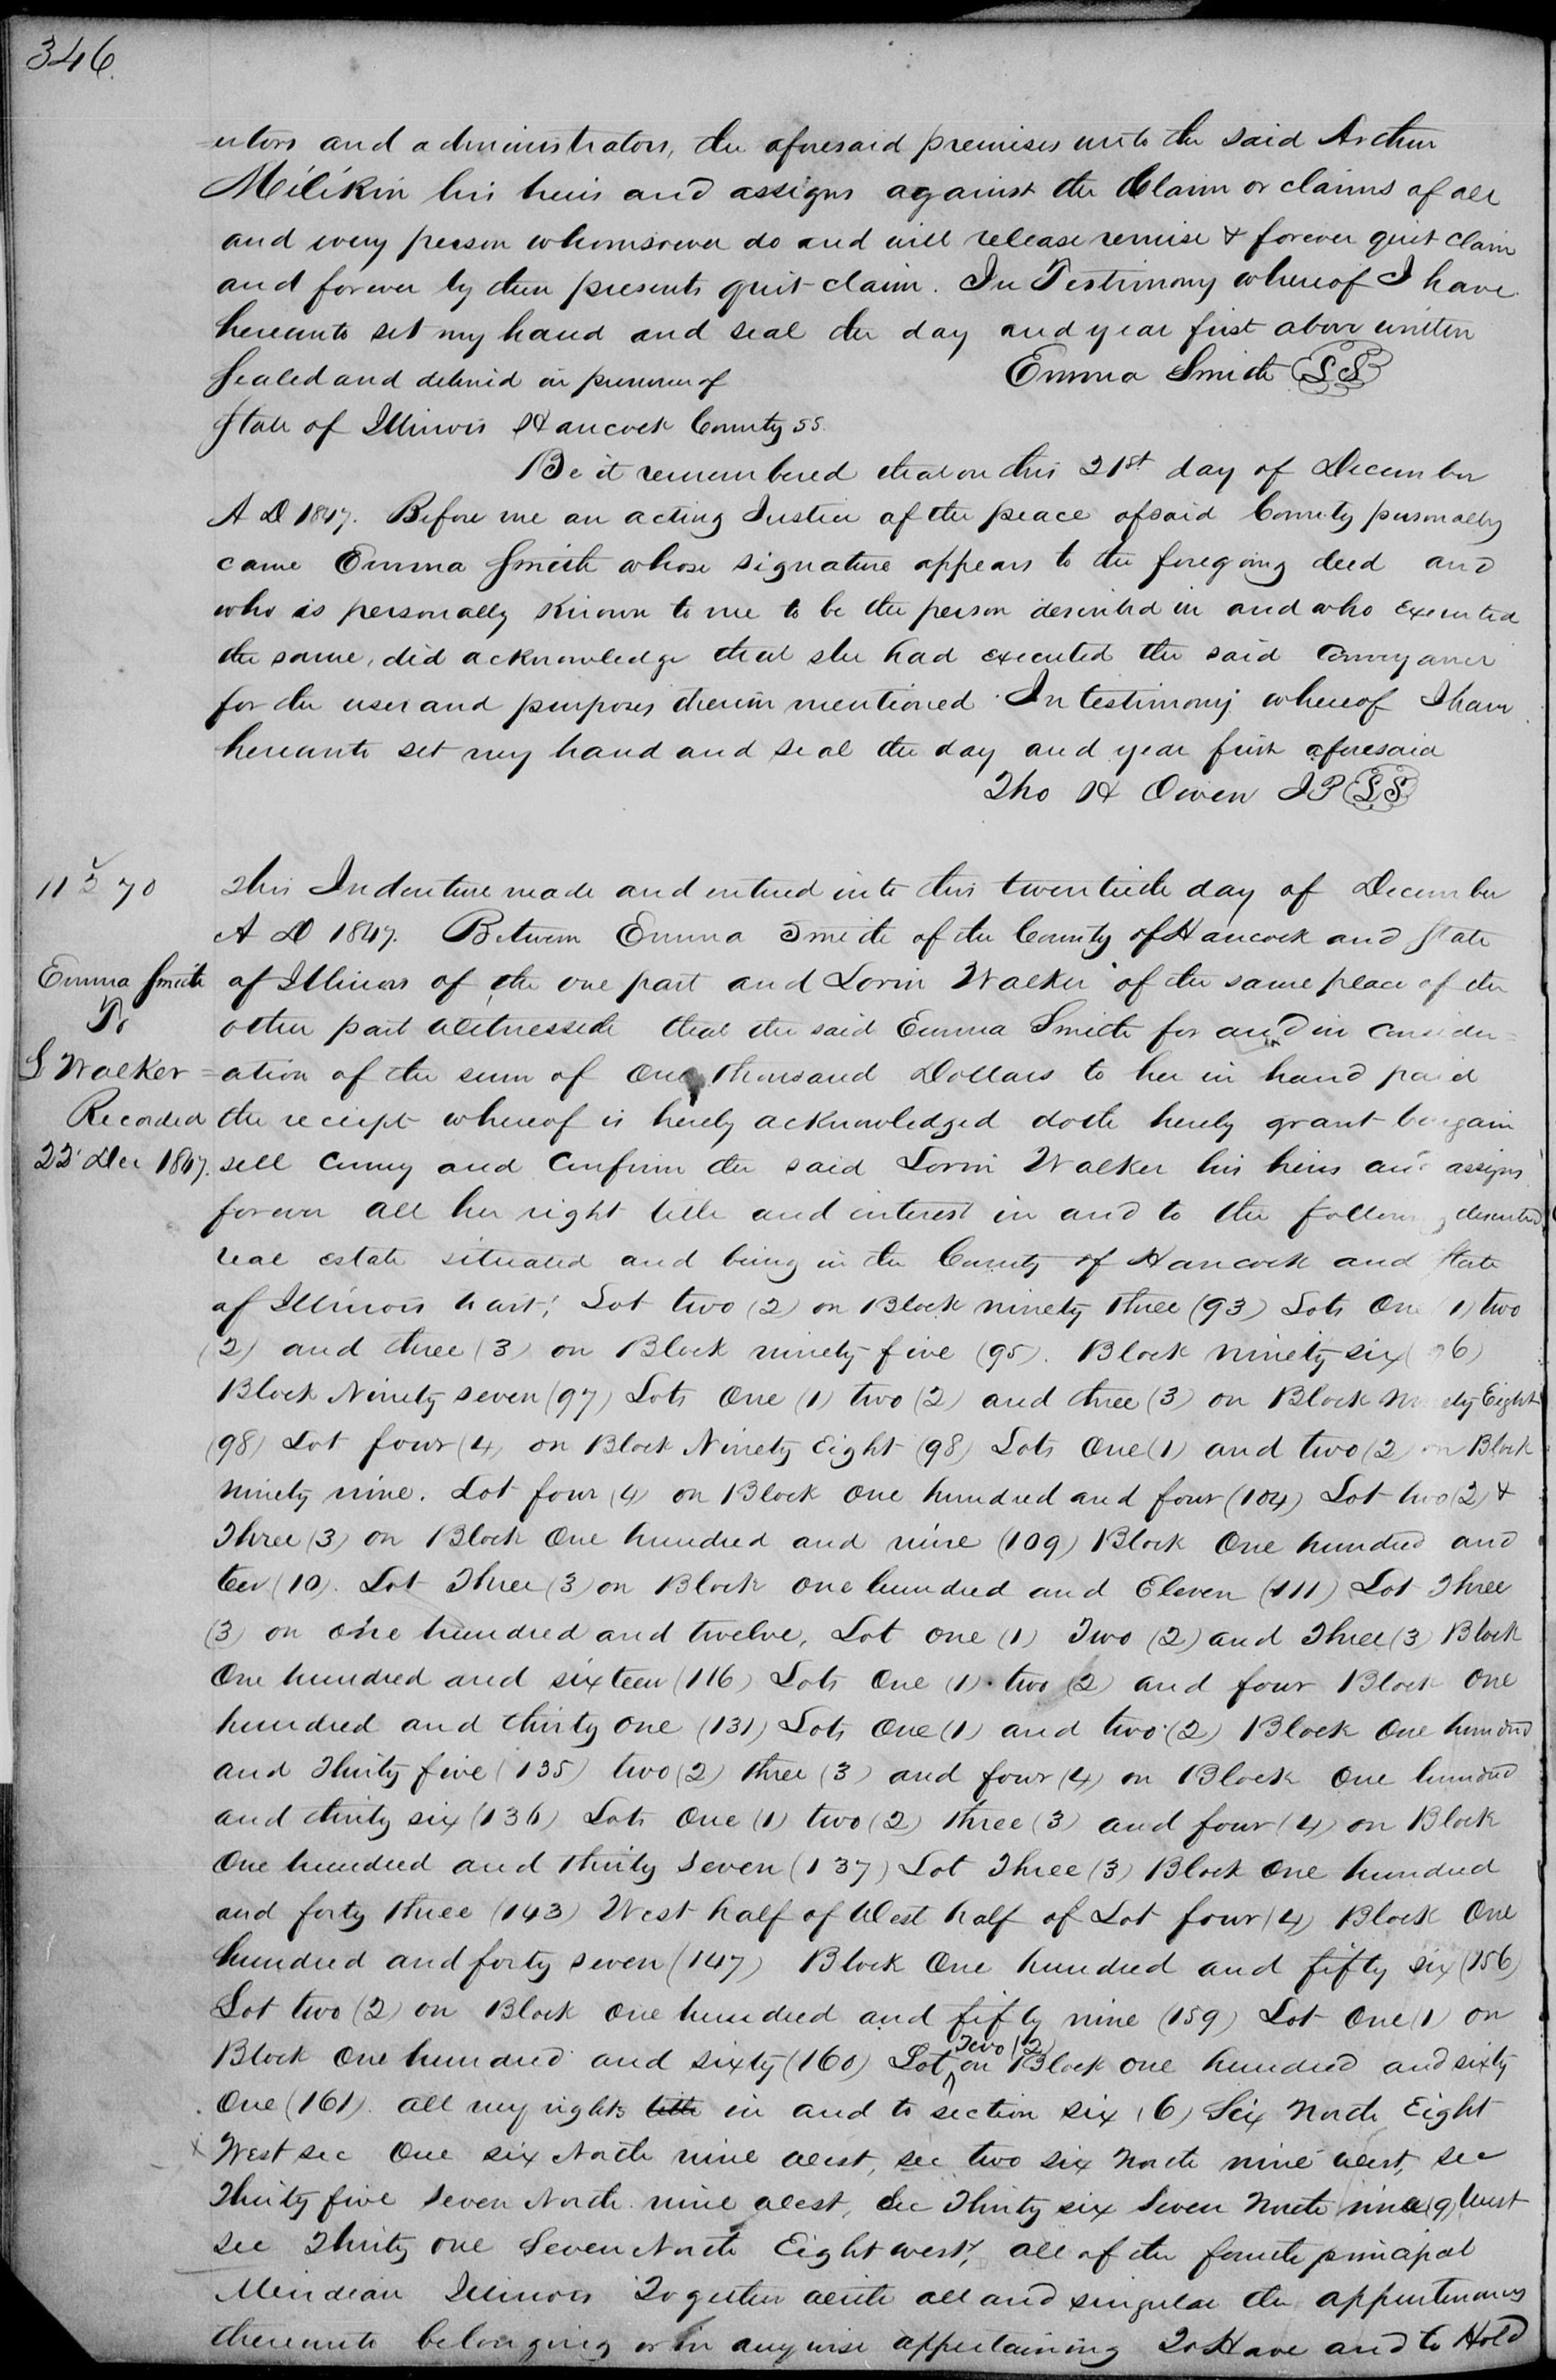 346.
-utors and administrators, the aforesaid premises unto the said Arthur
Milikin his heirs and assigns against the Claim or claims of all
and every person whomsoever do and will release remise & forever quit claim
and forever by these presents quit-claim. In Testimony whereof I have
hereunto set my hand and seal the day and year first above written
Sealed and delivered in presence of Emma Smith LS
State of Illinois Hancock County ss.
Be it remembered that on this 21st day of December
A D 1847. Before me an acting Justice of the peace of said County personally
came Emma Smith whose signature appears to the foregoing deed and
who is personally known to me to be the person described in and who executed
the same, did acknowledge that she had executed the said Conveyance
for the uses and purposes therein mentioned. In testimony whereof I have
hereunto set my hand and seal the day and year first aforesaid
Tho H Owen JP LS
This Indenture made and entered into this twentieth day of December
A D 1847. Between Emma Smith of the County of Hancock and State
Emma Smith of Illinois of the one part and Lorin Walker of the same place of the
To other part Witnesseth that the said Emma Smith for and in consider=
L Walker =ation of the sum of One Thousand Dollars to her in hand paid
Recorded the receipt whereof is hereby acknowledged doth hereby grant bargain
22 Dec 1847. sell Convey and Confirm the said Lorin Walker his heirs and assigns
forever all her right title and interest in and to the following described
real estate situated and being in the County of Hancock and State
of Illinois to wit; Lot two (2) on Block ninety three (93) Lots One (1) two
(2) and three (3) on Block ninety five (95). Block ninety six (96)
Block Ninety seven (97) Lots One (1) two (2) and three (3) on Block Ninety Eight
(98) Lot four (4) on Block Ninety Eight (98) Lots One (1) and two (2) on Block
ninety nine. Lot four (4) on Block one hundred and four (104) Lot two (2) &
Three (3) on Block One hundred and nine (109) Block One hundred and
ten (10). Lot Three (3) on Block one hundred and Eleven (111) Lot Three
(3) on one hundred and twelve, Lot one (1) Two (2) and Three (3) Block
One hundred and sixteen (116) Lots One (1) two (2) and four Block one
hundred and thirty one (131) Lots One (1) and two (2) Block One hundred
and Thirty five (135) two (2) three (3) and four (4) on Block One hundred
and thirty six (136) Lots One (1) two (2) three (3) and four (4) on Block
One hundred and thirty seven (137) Lot Three (3) Block One hundred
and forty three (143) West half of West half of Lot four (4) Block One
hundred and forty seven (147) Block One hundred and fifty six (156)
Lot two (2) on Block one hundred and fifty nine (159) Lot One (1) on
Block One hundred and sixty (160) Lot Two (2) on Block one hundred and sixty
One (161). all my rights title in and to section six (6) Six North Eight
West sec One six North nine west, sec two six North nine west, sec
Thirty five Seven North nine west, Sec Thirty six Seven North nine (9) West
sec Thirty one Seven North Eight west, all of the fourth principal
Meridian Illinois Together with all and singular the appurtenances
thereunto belonging or in anywise appertaining To Have and to Hold